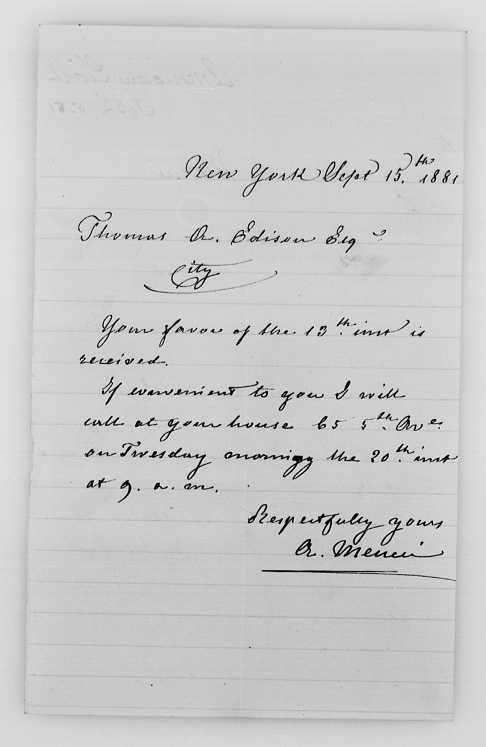 New York Sept 15.th 1881
Thomas A. Edison Esqre
City
Your favor of the 13th inst is
received.
If convenient to you I will
call at your house 65 5th Ave.
on Tuesday morning the 20th inst
at 9. a. m.
Respectfully yours
A.